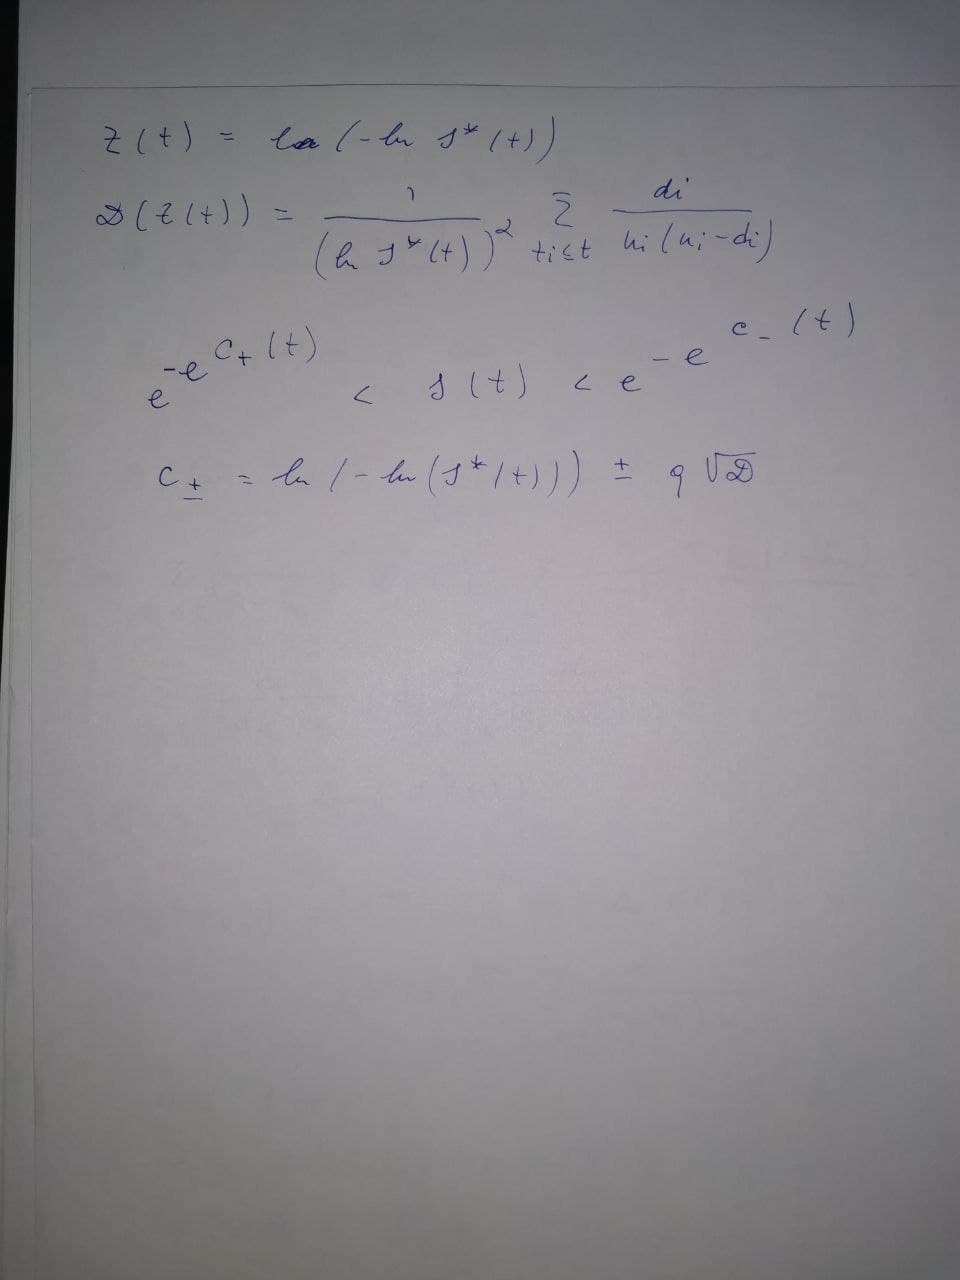 Z(t) = ln(-ln S*(t))
D(Z(t)) = 1/(ln S*(t))² Σ ti≤t di/ni(ni-di)
e^-e^C+(t) < S(t) < e^-e^C-(t)
C± = ln(-ln(S*(t))) ± q √D